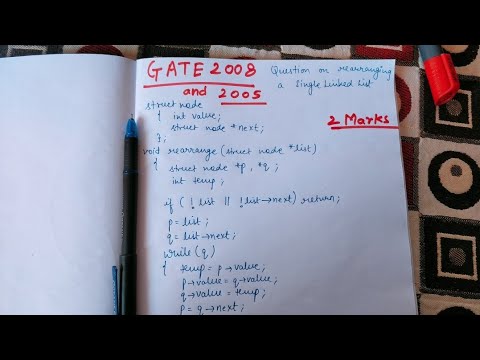 GATE 2008
and 2005
Question on rearranging
a Single Linked List
2 Marks
struct node
{ int value;
struct node *next;
};
void rearrange (struct node *list)
{ struct node *p, *q ;
int temp ;
if ( ! list || !list→next) return;
p = list ;
q = list→next ;
while (q)
{ temp = p→value;
p→value = q→value;
q→value = temp;
p = q→next ;